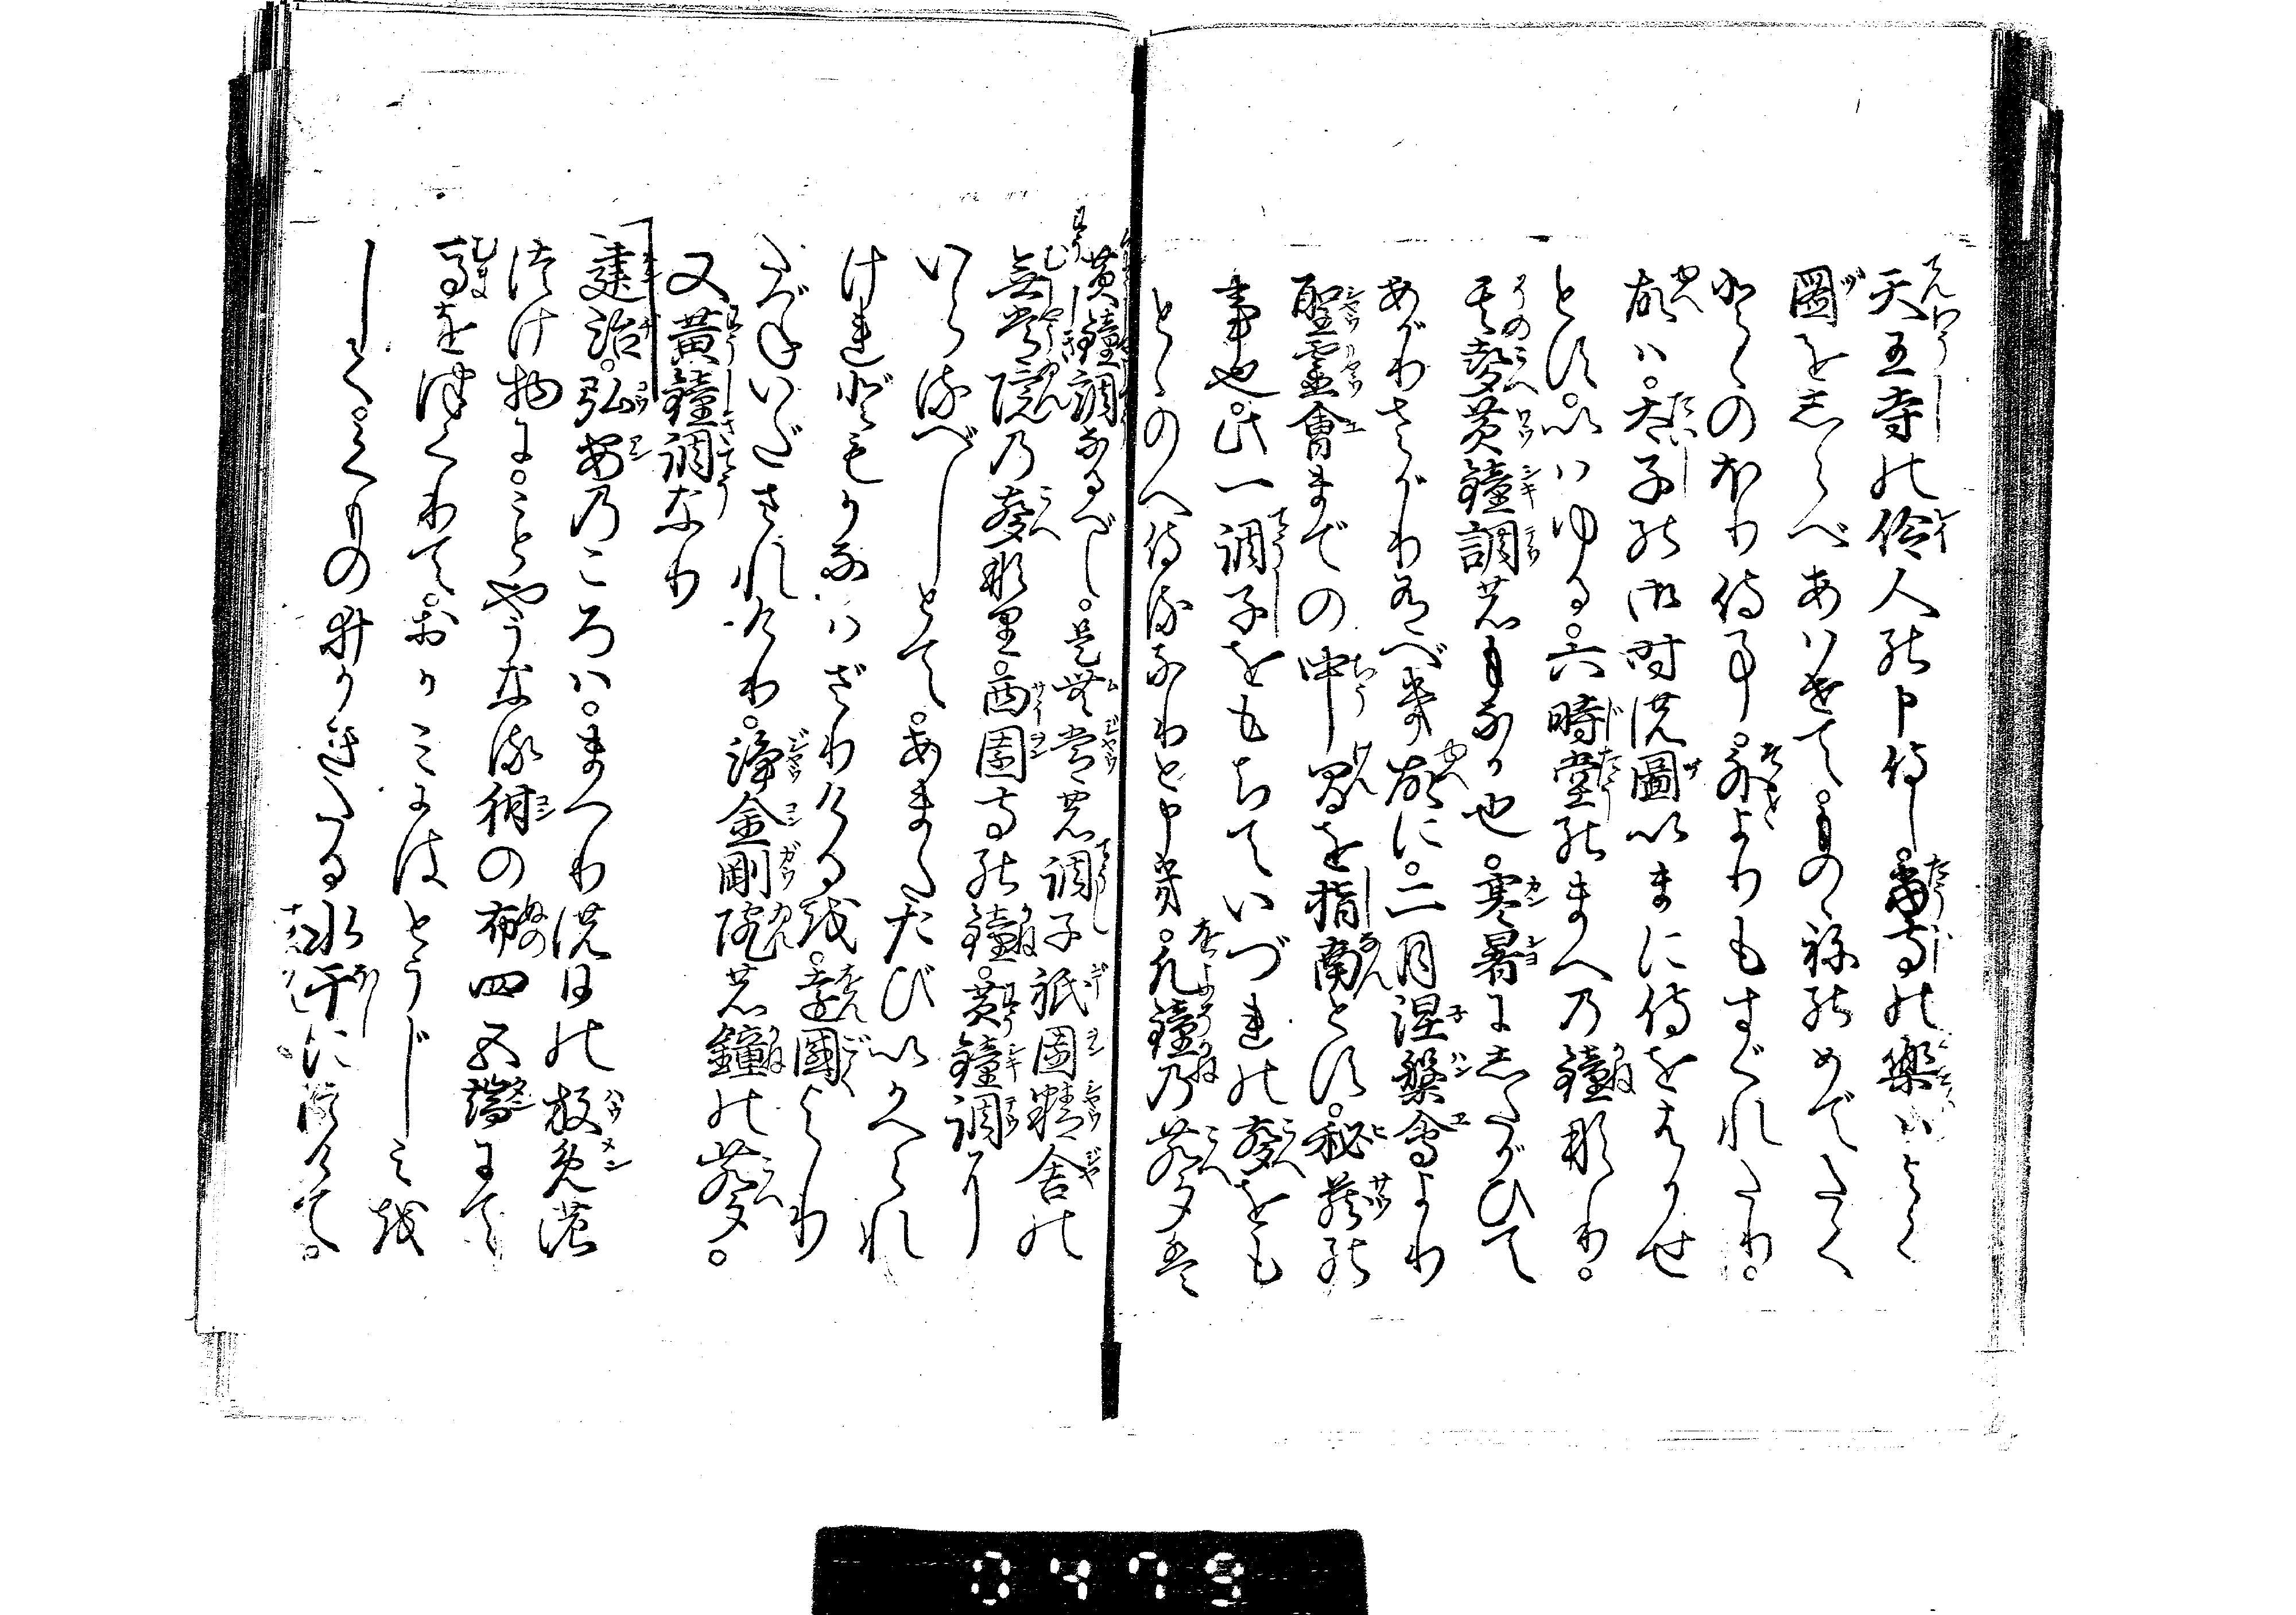 天王寺の伶人の申侍し。當寺の樂はよく
圖をしらべあはせて。ものゝ祢のめでたく
とゝのほり侍事。外よりもすぐれたり。
故は。太子の御時の圖いまに侍をはかせ
とす。いはゆる。六時堂のまへの鐘なり。
其聲黄鐘調のもなか也。寒暑にしたがひて
あがりさがりあるべき故に。二月涅槃會より
聖霊會までの中間を指南とす。秘蔵の
事也。此一調子をもちていづれの聲をも
とゝのへ侍るなりと申き。凡鐘の聲は
黄鐘調なるべし。是無常の調子祇園精舎の
無常院の聲なり。西園寺の鐘。黄鐘調に
いらるべしとて。あまたたびいかへられ
けれどもかなはざりけるを。遠國より
たづねいだされけり。浄金剛院の鐘の聲。
又黄鐘調なり
建治。弘安のころは。まつりの日の放免の
つけ物に。ことやうなる紺の布四五端にて
馬をつくりて。おかみにはとうじみを
して。くものゐかきたる水干につけて。
0479